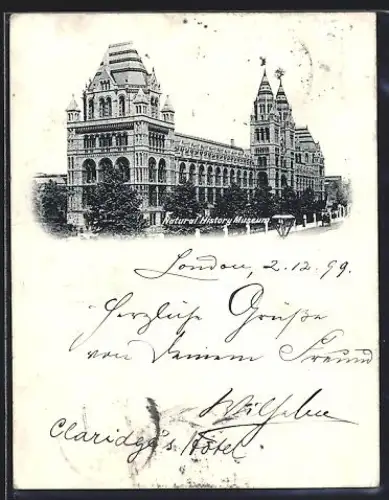 Natural History Museum.
London, 2.12.99.
Herzliche Grüße
von Deinem Freund
Wilhelm
Claridge's Hôtel.